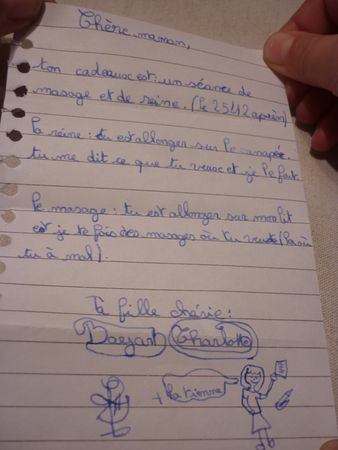 Chère maman,
ton cadeaux est : un séance de
masage et de reine. (le 25/12 aprèm)
la reine : tu est allonger sur le canapée.
tu me dit ce que tu veux et je le fait.
le masage : tu est allonger sur mon lit
et je te fais des masages où tu veut (là où
tu à mal).
Ta fille chérie :
Charlotte
+ la tienne